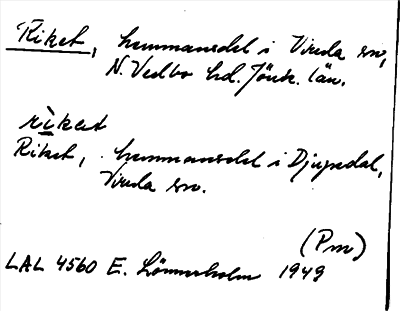 Riket, hemmansdel i Vireda sn,
N. Vedbo hd. Jönk. län.
rìkət
Riket, hemmansdel i Djupedal,
Vireda sn.
(Pm)
LAL 4560 E. Lönnerholm 1949